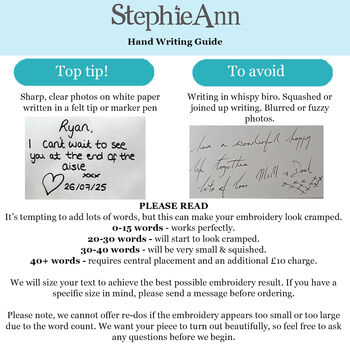 StephieAnn
Hand Writing Guide
Top tip!
Sharp, clear photos on white paper
written in a felt tip or marker pen
Ryan,
I can't wait to see
you at the end of the
aisle
xxx
26/07/25
To avoid
Writing in whispy biro. Squashed or
joined up writing. Blurred or fuzzy
photos.
have a wonderfull happy
life together
lots of love Mum & Dad
xxxx
PLEASE READ
It's tempting to add lots of words, but this can make your embroidery look cramped.
0-15 words - works perfectly.
20-30 words - will start to look cramped.
30-40 words - will be very small & squished.
40+ words - requires central placement and an additional £10 charge.
We will size your text to achieve the best possible embroidery result. If you have a
specific size in mind, please send a message before ordering.
Please note, we cannot offer re-dos if the embroidery appears too small or too large
due to the word count. We want your piece to turn out beautifully, so feel free to ask
any questions before we begin.